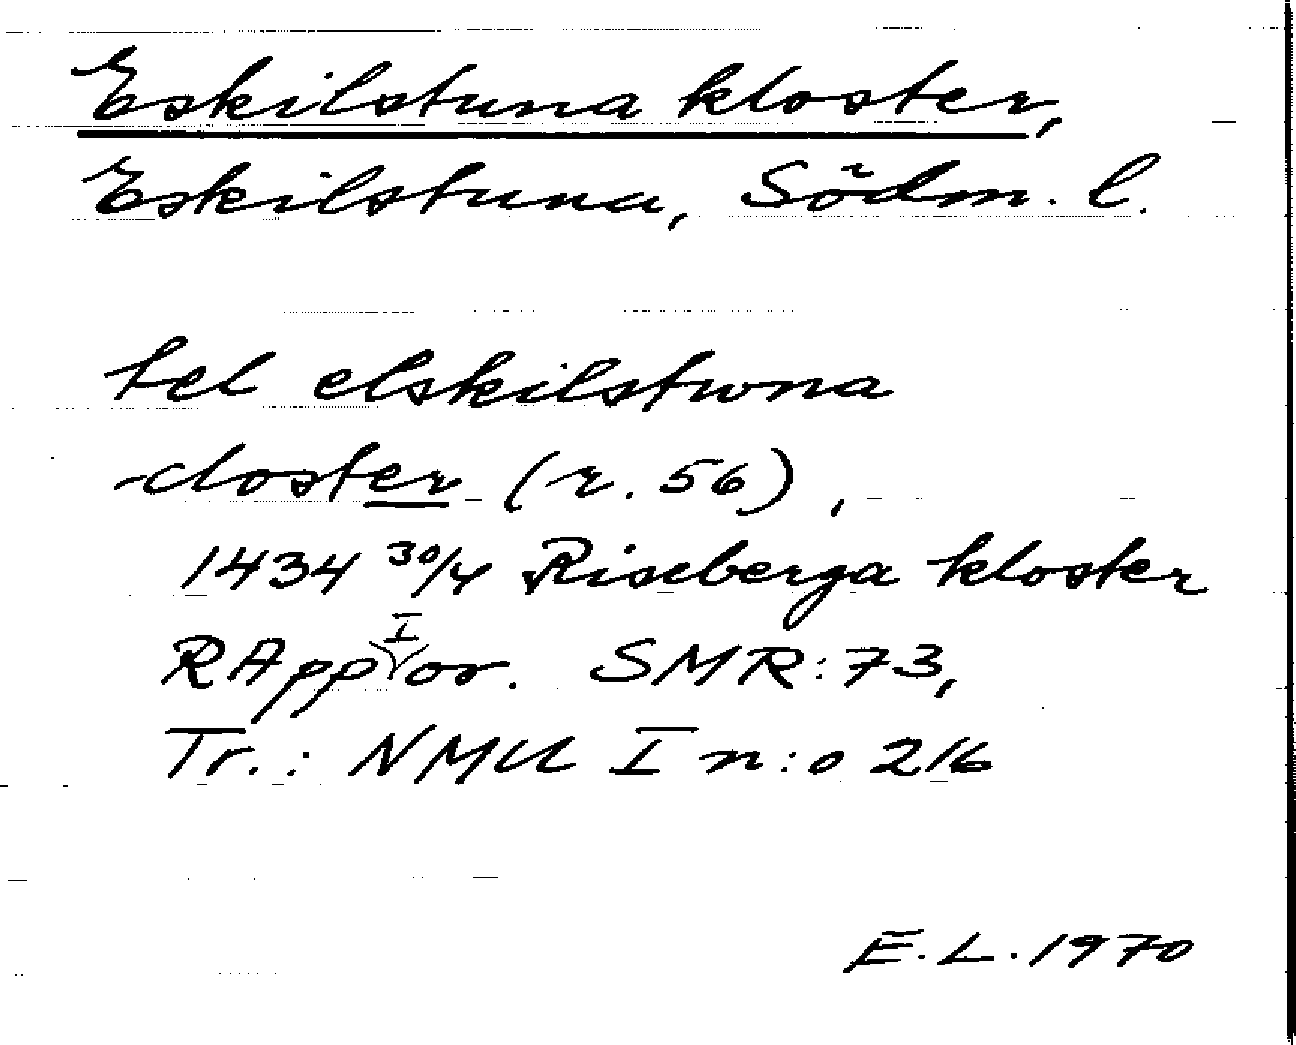 Eskilstuna kloster,
Eskilstuna, Södm. l.
tel elskilstwna
closter (r. 56),
1434 30/4 Riseberga kloster
RApp I or. SMR: 73,
Tr.: NMU I n:o 216
E.L. 1970